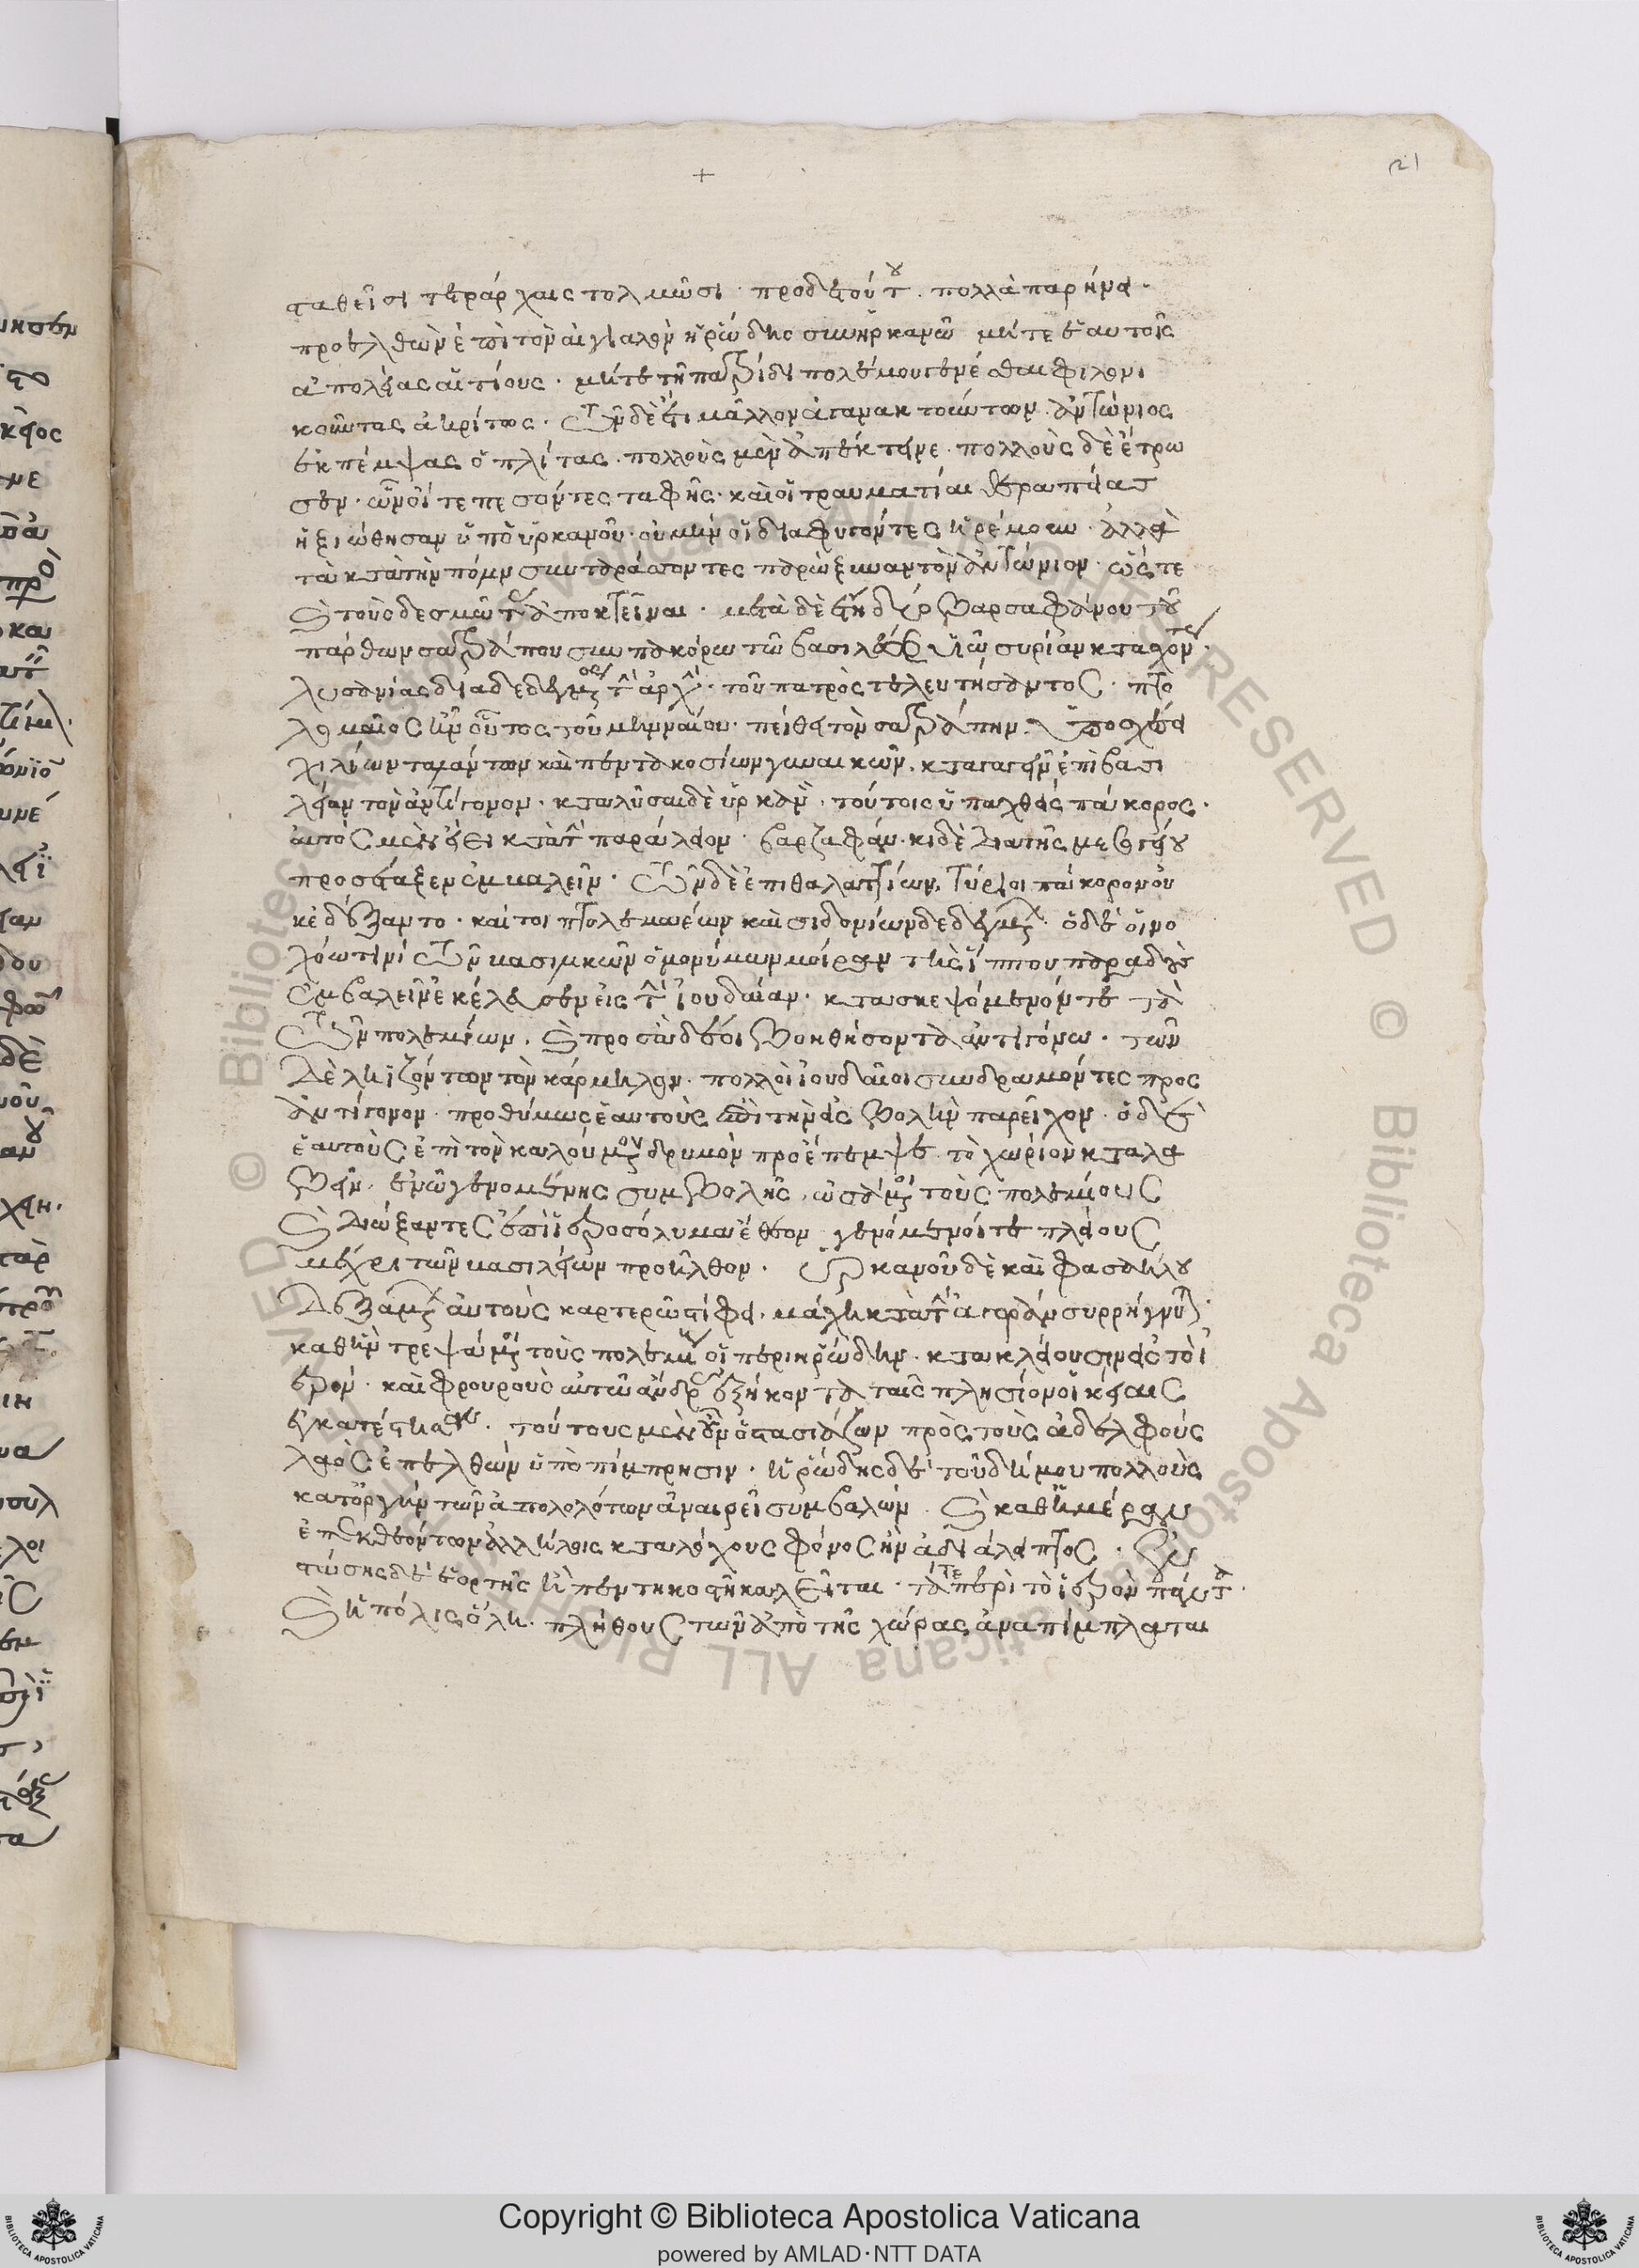 σταθεῖσι τετράρχαις τολμῶσι· πρὸ δὲ τούτου. πολλὰ παρήνει·
προελθὼν ἐπὶ τὸν αἰγιαλὸν ἡρώδης σὺν ὑρκανῶ μήτε ἑαυτοῖς
ἀπολείας αἰτίους· μήτε τῆ πατρίδι πολέμου γενέσθαι φιλονι
κοῦντας ἀκρίτως· τῶν δὲ ἔτι μᾶλλον ἀγανακτούντων. ἀντώνιος
ἐκπέμψας ὁπλίτας· πολλοὺς μὲν ἀπέκτεινε· πολλοὺς δὲ ἔτρω
σεν· ὧν οἵ τε πεσόντες ταφῆς· καὶ οἱ τραυματίαι θεραπείας
ἠξιώθησαν ὑπὸ ὑρκανοῦ· οὐ μὴν οἱ διαφυγόντες ἠρέμουν· ἀλλὰ
τὰ κατὰ τὴν πόλιν συνταράσσοντες παρώξυναν τὸν ἀντώνιον· ὥστε
καὶ τοὺς δεσμώτας ἀποκτεῖναι· μετὰ δὲ ἔτη δύο βαρσαφράνου τοῦ
πάρθων σατράπου σὺν πακόρω τῶ βασιλέως υἱῶ συρίαν κατασχόντος·
λυσανίας διαδεδεγμένος τὴν ἀρχήν· τοῦ πατρὸς τελευτήσαντος· πτο
λεμαῖος ἦν οὗτος τοῦ μινναίου· πείθει τὸν σατράπην. ὑποσχέσει
χιλίων ταλάντων καὶ πεντακοσίων γυναικῶν. καταγαγεῖν ἐπὶ βασι
λείαν τὸν ἀντίγονον· καταλῦσαι δὲ ὑρκανὸν· τούτοις ὑπαχθεὶς πάκορος·
αὐτὸς μὲν ἤει κατὰ τὴν παράλιον· βαρζαφάν·κι δὲ διὰ τῆς μεσογείου
προσέταξεν ἐμβαλεῖν· τῶν δὲ ἐπιθαλαττίων, τύριοι πάκορον οὐ
κ ἐδέξαντο· καίτοι πτολεμαιέων καὶ σιδονίων δεδεγμένων· ὁ δὲ οἰνο
χόω τινί τῶν βασιλικῶν ὁμονύμων μοίραν τῆς ἵππου παραδοὺς
ἐμβαλεῖν ἐκέλευσεν εἰς τὴν ἰουδαίαν· κατασκεψόμενόν τε τὰ
τῶν πολεμίων. καὶ προς ἃ δέοι βοηθήσοντα ἀντιγόνω· τῶν
δὲ ληιζόντων τὸν κάρμηλον· πολλοὶ ἰουδαῖοι συνδραμόντες προς
ἀντίγονον· προθύμως ἑαυτοὺς ἐπὶ τὴν εἰσβολὴν παρεῖχον· ὁ δὲ
ἑαυτοὺς ἐπὶ τὸν καλούμενον δρυμὸν προέπεμψε· τὸ χωρίον καταλα
βεῖν. ἐν ῶ γενομένης συμβολῆς, ὠσάμενοι τοὺς πολεμίους
καὶ διώξαντες ἐπὶ ἱεροσόλυμα ἔθεον γενόμενοί τε πλείους
μέχρι τῶν βασιλείων προῆλθον· ὑρκανοῦ δὲ καὶ φασαήλου
δεξαμένων αὐτοὺς καρτερῶ στίφει, μάχη κατὰ τὴν ἀγορὰν συρρήγνυται·
καθ ἣν τρεψάμενοι τοὺς πολεμίους οἱ περι ἡρώδην· κατακλείουσιν εἰς τὸ ἱ
ερόν· καὶ φρουροὺς αὐτῶ ἄνδρας ἑξήκοντα ταῖς πλησίον οἰκίαις
ἐγκατέστησαν· τούτους μὲν οὖν ὁ στασιάζων πρὸς τοὺς ἀδελφούς
λαὸς ἐπελθὼν ὑποπίμπρησιν· ἡρώδης δὲ τοῦ δήμου πολλοὺς
κατ ὀργὴν τῶν ἀπολολότων ἀναιρεῖ συμβαλών. καὶ καθ ἡμέραν
ἐπεκθεόντων ἀλλήλοις κατα λόχους φόνος ἦν ἀδιάλειπτος· ἐν
στώσης δὲ ἑορτῆς ἣ πεντηκοστὴ καλεῖται· τά τε περὶ τὸ ἱερὸν πάντα·
καὶ ἡ πόλις ὅλη· πλήθους τῶν ἀπὸ τῆς χώρας ἀναπίμπλαται
21
Copyright © Biblioteca Apostolica Vaticana
powered by AMLAD·NTT DATA
© Biblioteca Apostolica Vaticana ALL RIGHTS RESERVED